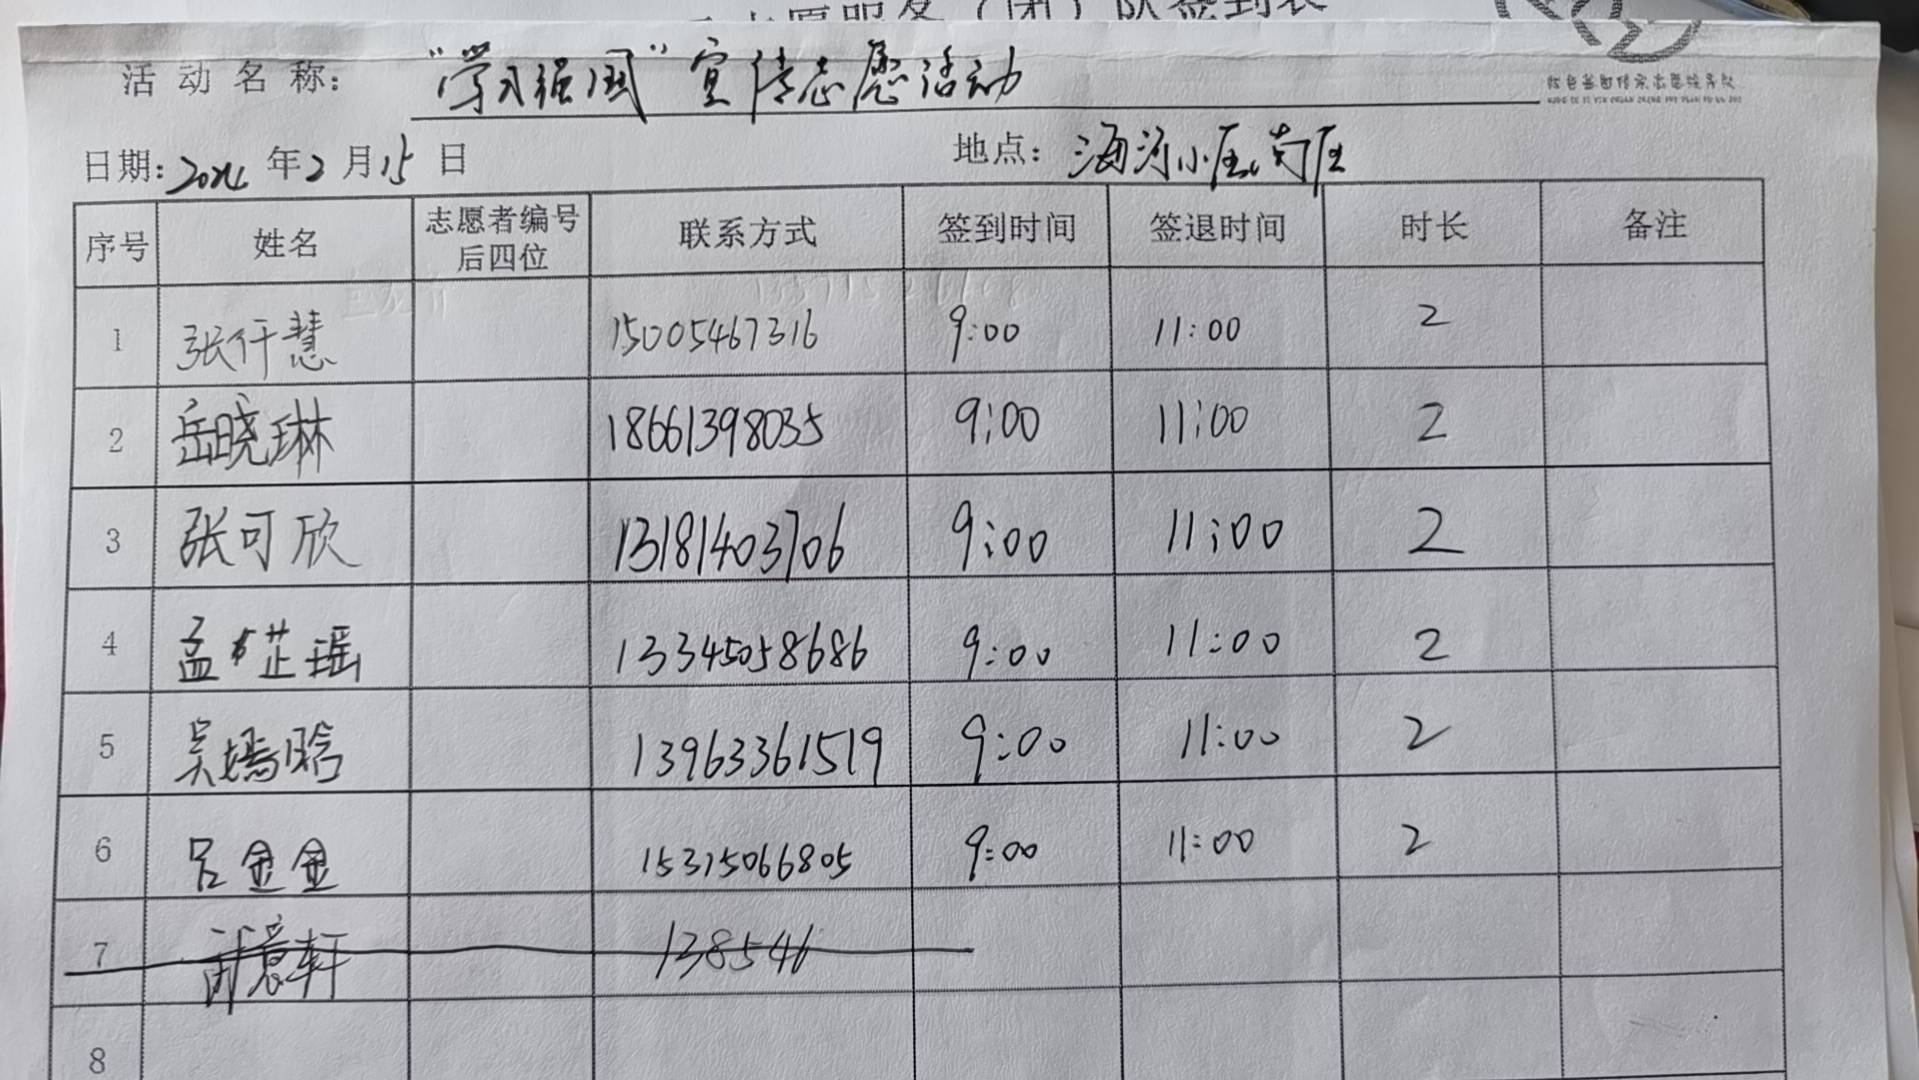 志愿服务（团）队签到表
活动名称：“学习强国”宣传志愿活动
日期：2024年2月15日 地点：海河小区南区
序号 姓名 志愿者编号后四位 联系方式 签到时间 签退时间 时长 备注
1 张仟慧 15005467316 9:00 11:00 2
2 岳晓琳 18661398035 9:00 11:00 2
3 张可欣 13181403706 9:00 11:00 2
4 孟芷瑶 13345058686 9:00 11:00 2
5 吴嫣晗 13963361519 9:00 11:00 2
6 吕金金 15315066805 9:00 11:00 2
7 138546
8